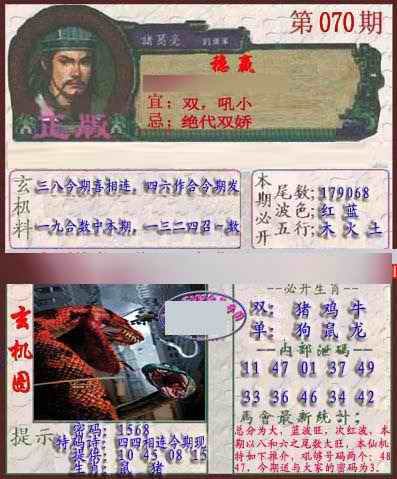 第070期
諸葛亮
稳赢
宜：双，吼小
忌：绝代双娇
正版
玄机料
三八今期喜相连，四六作合今期发
一九合数中本期，一三二四召一数
本期必开
尾数：179068
波色：红 蓝
五行：木 火 土
玄机图
必开生肖
双：猪 鸡 牛
单：狗 鼠 龙
内部泄码
11 47 01 37 49
33 36 46 34 42
馬會最新統計；
总分为大，蓝波旺，次红波，本
期以八和六之尾数大旺，本仙机
特如下推介，吼够号码两个：48
47，今期送与大家的密码为3。
提示
密码：1568
特码诗：四四相连今期现
提倍：10 45 08 15
生肖：鼠 猪